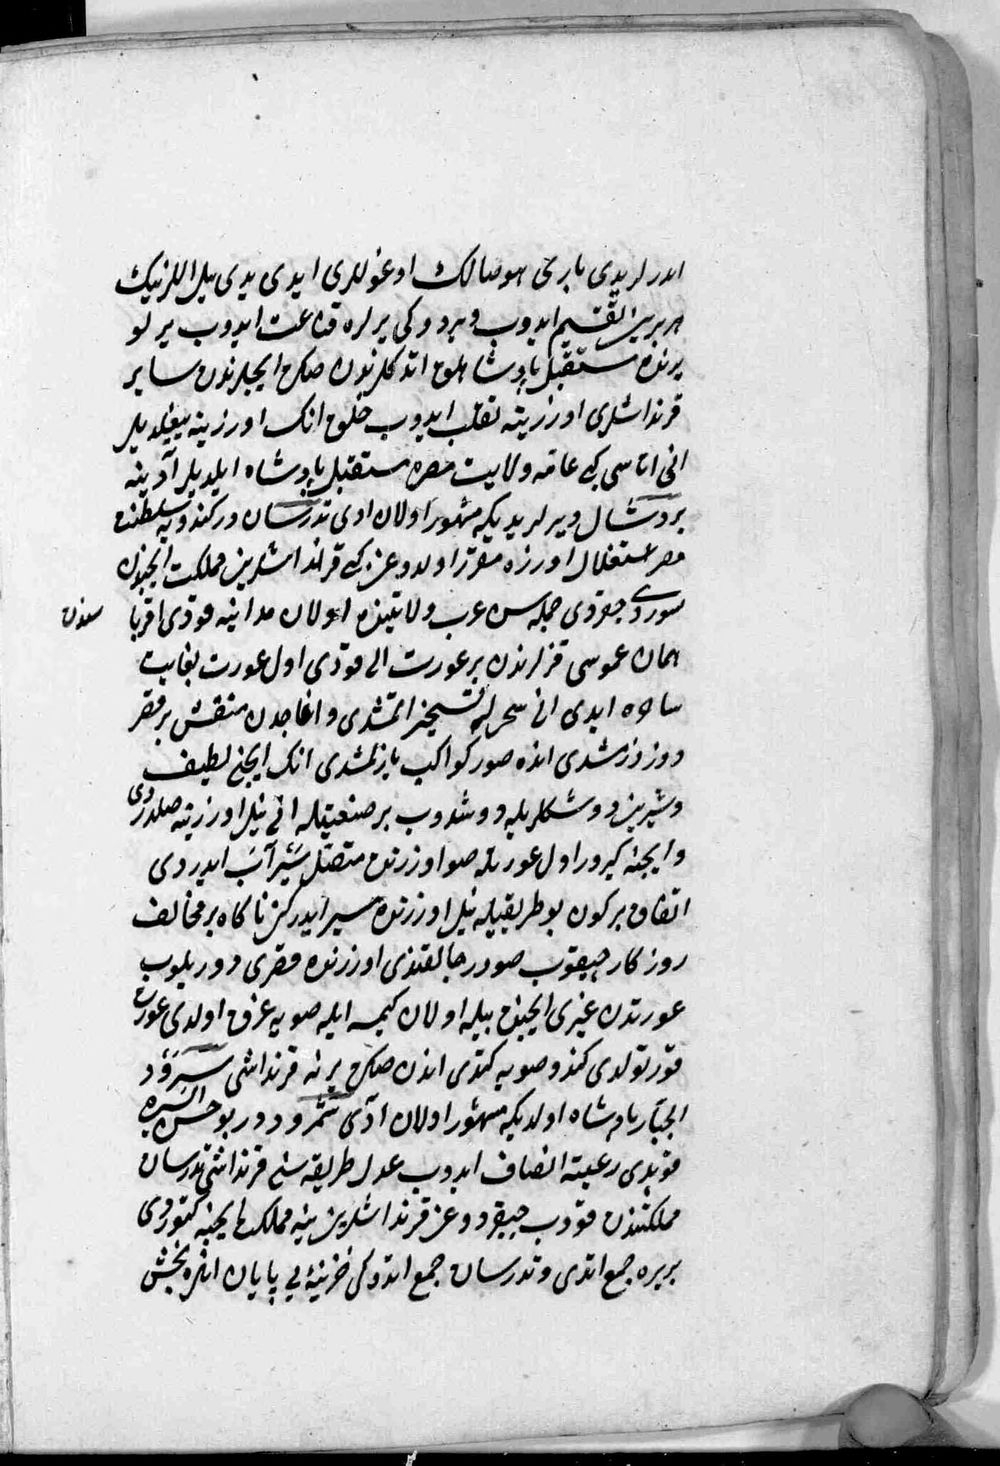 ایدرلریدی باری هوصالک اوغوللری ایدی یدی ییل اللرنیک
هر بریس تقسیم ایدوب ویردوکی یرلره قناعت ایدوب یرلو
یرنده مستقبل پادشاهلوق اتدکلرندن صکره ایچلرندن سایر
قرنداشلری اوزرینه تغلب ایدوب خلق انک اوزرینه ییغلدیلر
انی اتاسی کبی عامه ولایت مصره مستقبل پادشاه ایلدیلر آدینه
بردشال دیرلریدیکه مشهور اولان ادی تدرسان در کندویه سلطنت
مصر استقلال اوزره مقرر اولدوغن کبی قرنداشلرین مملکت ایچندن
سوردی چقردی جمله سن عرب ولایتنده اولان مداینه قودی اقربا سندن
همان عموسی قزلرندن بر عورت الی قودی اول عورت بغایت
ساحره ایدی انی سحرله تسخیر اتمشدی و اغاجدن منقش بر قصر
دوزدرمشدی انده صور کواکب یازلمشدی انک ایچنی لطیف
وشیرین دوشکلریله دوشدوب بر صنعتیله انی نیل اوزرینه صلدردی
و ایچنه کیرور اول عورتله صو اوزرنده متصل سیر آب ایدردی
اتفاق برکون بو طریقیله نیل اوزرنده سیر ایدرکن ناکاه بر مخالف
روزکار چیقوب صودر چالقندی اوزرنده قصری دوریلوب
عورتدن غیری ایچنده بیله اولان کیمسه ایله صویه غرق اولدی عورت
قورتولدی کندو صویه کتدی اندن صکره یرنه قرنداشی سرود
الجبار پادشاه اولدیکه مشهور اولان ادی شمرود در بو حسن السیره
قوبدی رعیته انصاف ایدوب عدل طریقه سنی قرنداشی تدرسان
مملکتندن قودب چیقردوغن قرنداشلرین ینه مملکت ایچنه کتوردی
بریره جمع اتدی و تدرسان جمع اتدوکی خزینه بی پایان انلره بخش